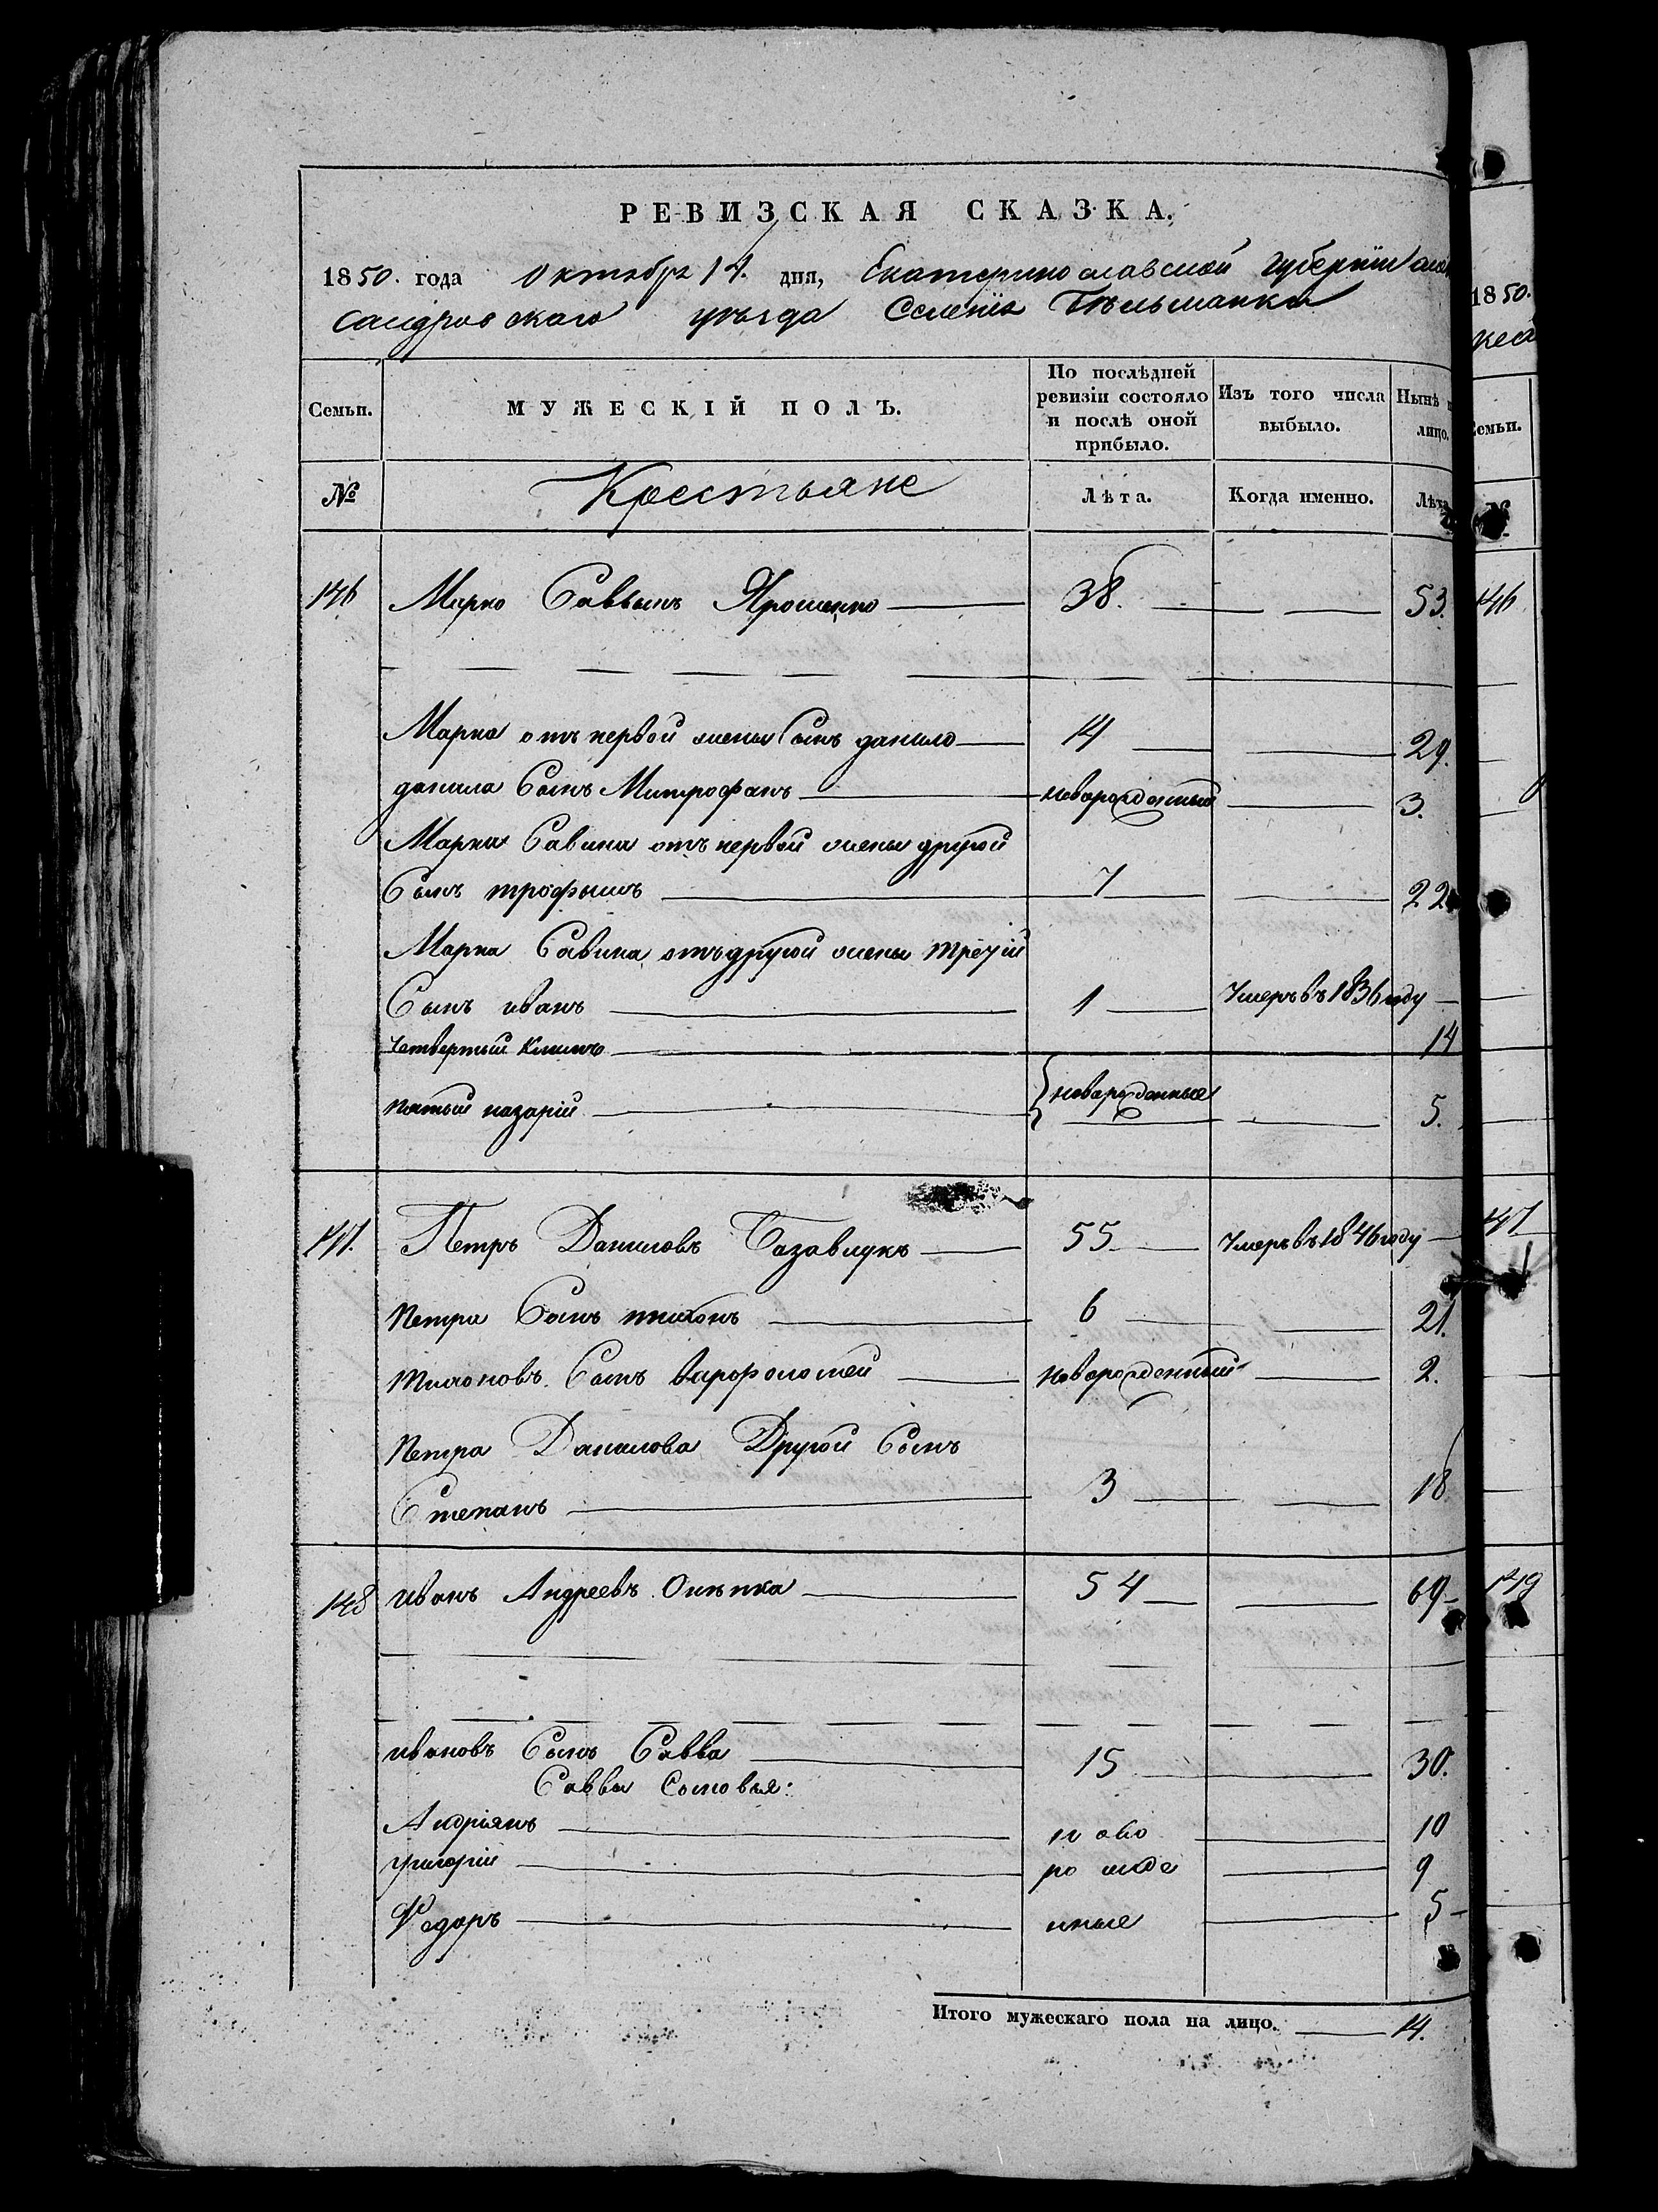 РЕВИЗСКАЯ СКАЗКА.
1850. года октября 14. дня, Екатеринославской губерніи алек
сандровскаго уѣзда Селенія Бѣльманки
Семьи. МУЖЕСКІЙ ПОЛЪ. По послѣдней ревизіи состояло и послѣ оной прибыло. Изъ того числа выбыло. Нынѣ на лицо.
№ Крестьяне Лѣта. Когда именно. Лѣта
146 Марко Саввынъ Ярошенко 38. 53.
Марка отъ первой жены Сынъ данило 14 29.
данила Сынъ Митрофанъ новорожденный 3.
Марка Савина отъ первой жены другой
Сынъ трофымъ 7 22
Марка Савина отъ другой жены Третій
Сынъ иванъ 1 Умеръ въ 1836 году
четвертый Климъ 14
пятый назарій новорожденные 5.
147. Петръ Даниловъ Базавлукъ 55 Умеръ въ 1846 году
Петра Сынъ тихонъ 6 21.
тихоновъ Сынъ варфоломей новорожденный 2.
Петра Данилова Другой Сынъ
Степанъ 3 18
148 иванъ Андреевъ 54 69
ивановъ Сынъ Савва 15 30.
Саввы Сыновья:
Андріянъ ново 10
григорій рожде 9
Федоръ нные 5
Итого мужескаго пола на лицо. 14.
1850.
Семьи.
№
146
147
148